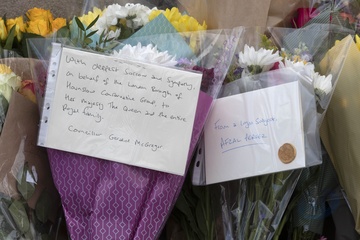 With deepest Sorrow and Sympathy,
on behalf of the London Borough of
Hounslow Conservative Group, to
Her Majesty The Queen and the entire
Royal Family.
Councillor Gerald McGregor
From a Loyal